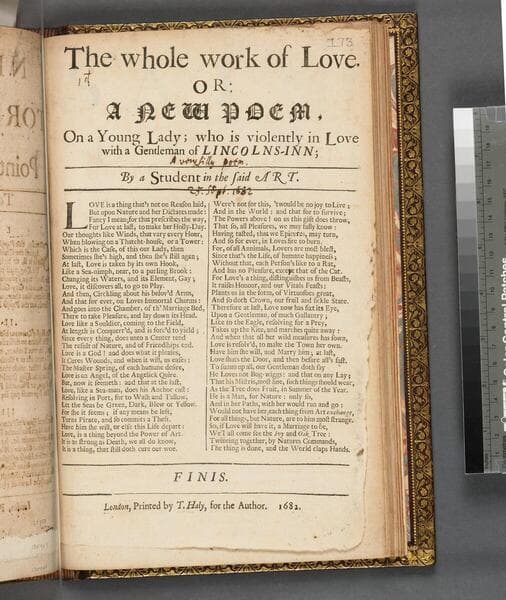 173
The whole work of Love.
1st
OR:
A NEW POEM,
On a Young Lady; who is violently in Love
with a Gentleman of LINCOLNS-INN;
A very silly poem.
By a Student in the said ART.
25. Sept. 1682
LOVE is a thing that's not on Reason laid,
But upon Nature and her Dictates made:
Fancy I mean, for that prescribes the way,
For Love at last, to make her Holly-Day.
Our thoughts like Winds, that vary every Hour,
When blowing on a Thatcht-house, or a Tower:
Which is the Case, of this our Lady, then
Sometimes she's high, and then she's still agen;
At last, Love is taken by its own Hook,
Like a Sea-nimph, near, to a purling Brook:
Changing its Waters, and its Element, Gay;
Love, it discovers all, to go to Play.
And then, Circkling about his belov'd Arms,
And that for ever, on Loves Immortal Charms:
And goes into the Chamber, of th' Marriage Bed,
There to take Pleasure, and lay down its Head.
Love like a Souldier, coming to the Field,
At length is Conquer'd, and is forc'd to yield;
Since every thing, does unto a Center tend
The result of Nature, and of Friendships end.
Love is a God! and does what it pleases,
It Cures Wounds, and when it will, us eases:
The Master Spring, of each humane desire,
Love is an Angel, of the Angelick Quire.
But, now it seemeth; and that at the last,
Love, like a Sea-man, does his Anchor cast:
Resolving in Port, for to Wash and Tallow,
Let the Seas be Green, Dark, Blew or Yellow.
For she it seems; if any means be left,
Turns Pirate, and so commits a Theft.
Have him she will, or else this Life depart:
Love, is a thing beyond the Power of Art.
It is as strong as Death, we all do know,
It is a thing, that still doth cure our woe.
Were't not for this, 'twould be no joy to Live;
And in the World: and that for to survive;
The Powers above! on us this gift does throw,
That so, all Pleasures, we may fully know:
Having tasted, that we Epicures, may turn,
And so for ever, in Loves fire to burn.
For, of all Animals, Lovers are most blest,
Since that's the Life, of humane happiness;
Without that, each Person's like to a Rat,
And has no Pleasure, except that of the Cat.
For Love's a thing, distinguishes us from Beasts,
It raises Honour, and our Vitals Feasts:
Plants us in the form, of Virtuosoes great,
And so doth Crown, our frail and fickle State.
Therefore at last, Love now has fixt its Eye,
Upon a Gentleman, of much Gallantry;
Like to the Eagle, resolving for a Prey,
Takes up the Kite, and marches quite away:
And when that all her wild measures has sown,
Love is resolv'd, to make the Town her own.
Have him she will, and Marry him; at last,
Love shuts the Door, and then before all's fast.
To summ up all, our Gentleman doth say
He Loves not Bog-wiggs: and that on any Lay;
That his Mistris, most fine, such things should wear,
As the Tree does Fruit, in Summer of the Year.
He is a Man, for Nature: only so,
And in her Paths, with her would run and go;
Would not have her, each thing from Art exchange,
For all things, but Nature, are to him most strange.
So, if Love will have it, a Marriage to be,
We'll all come see the Ivy and Oak Tree:
Twineing together, by Natures Commands,
The thing is done, and the World claps Hands.
FINIS.
London, Printed by T. Haly, for the Author. 1682.